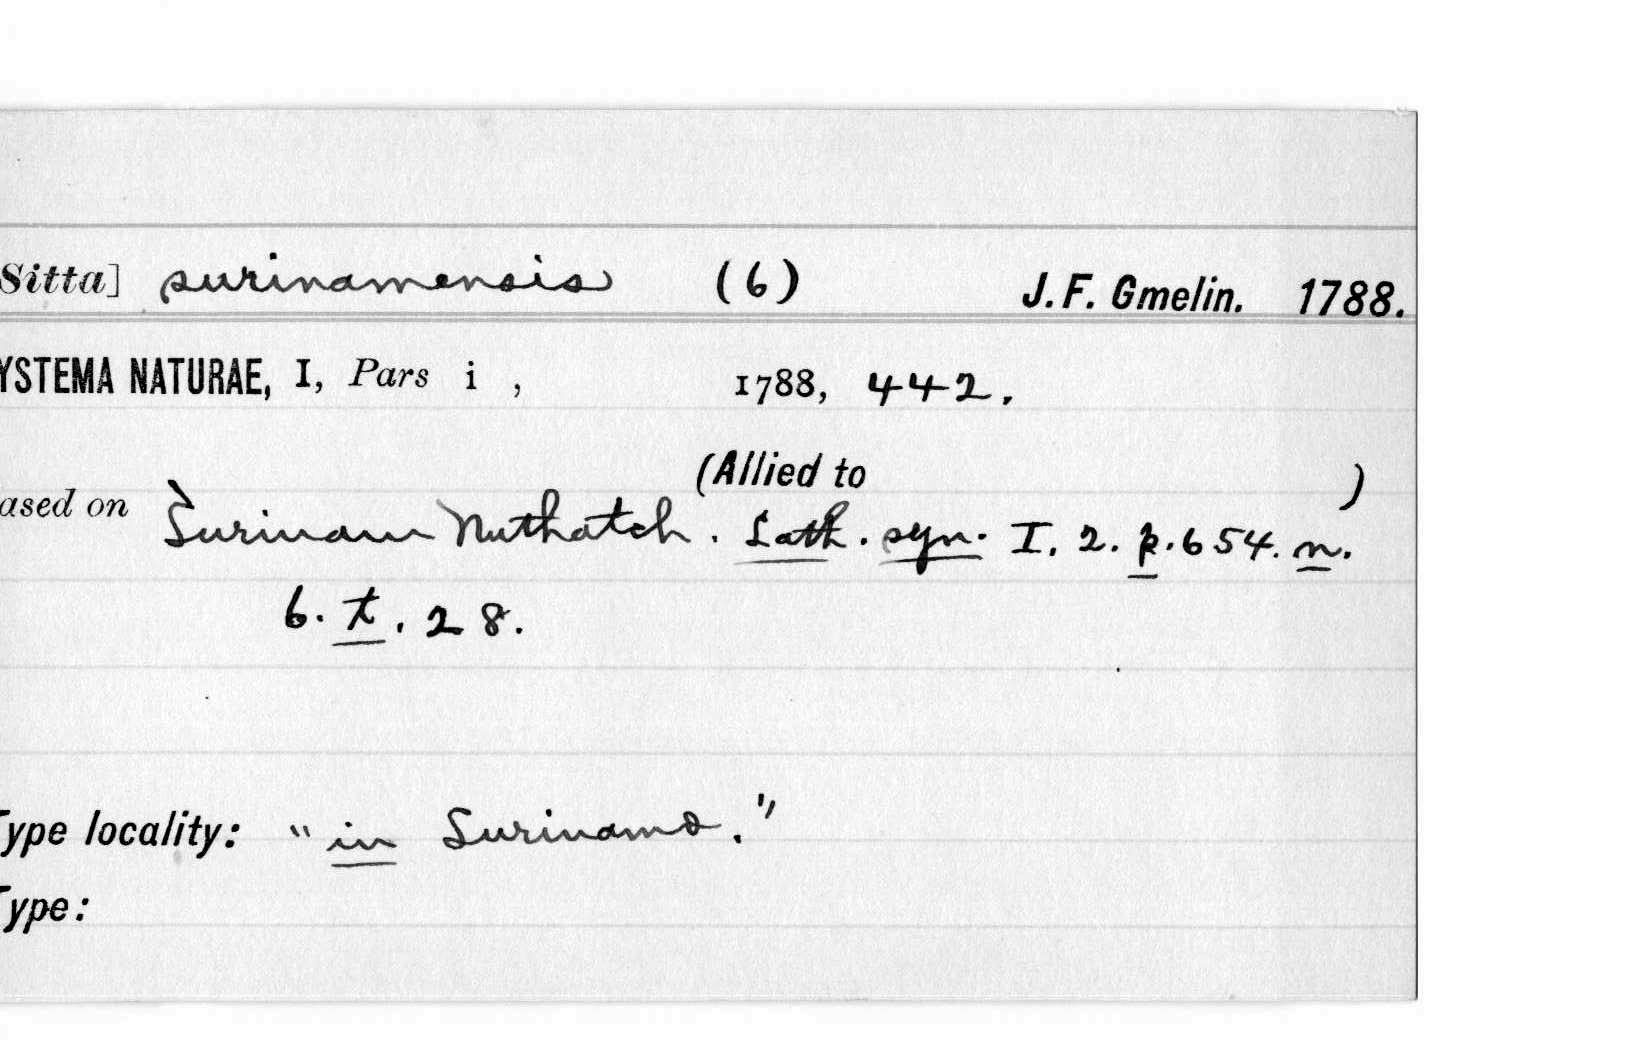 Sitta] surinamensis (6) J. F. Gmelin. 1788.
YSTEMA NATURAE, I, Pars i , 1788, 442.
(Allied to )
ased on Surinam Nuthatch. Lath. syn. I. 2. p. 654. n.
6. t. 28.
Type locality: "in Surinamo."
Type: